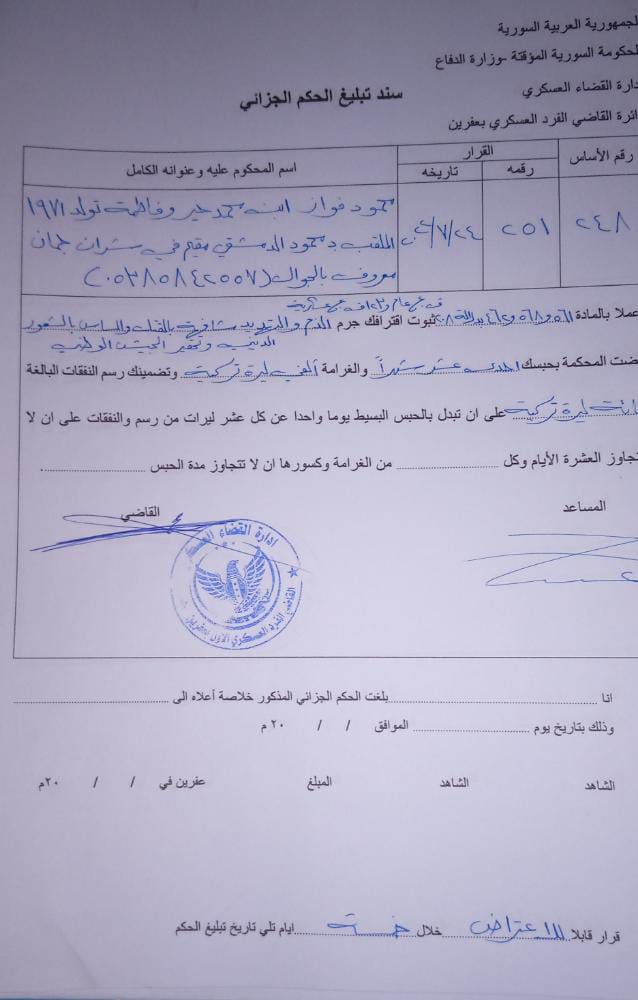 لجمهورية العربية السورية
لحكومة السورية المؤقتة -وزارة الدفاع
دارة القضاء العسكري
سند تبليغ الحكم الجزائي
ائرة القاضي الفرد العسكري بعفرين
رقم الأساس
القرار
رقمه
تاريخه
اسم المحكوم عليه وعنوانه الكامل
٢٤٨
٢٥١
٢٤/٧/
محمود فواز ابنه محمد خير وفاطمة تولد ١٩٧١
الملقب بـ محمود الدمشقي مقيم في شران
معروف بالجوال (٠٥٣٨٥٨٤٢٥٥٧)
عملا بالمادة ثبوت اقترافك جرم الذم والتهديد مشافهة بالقتل والمساس بالشعور
الديني وتحقير الجيش الوطني
ضت المحكمة بحبسك احدى عشر شهراً والغرامة ألفي ليرة تركية وتضمينك رسم النفقات البالغة
ليرة تركية على ان تبدل بالحبس البسيط يوما واحدا عن كل عشر ليرات من رسم والنفقات على ان لا
تجاوز العشرة الأيام وكل من الغرامة وكسورها ان لا تتجاوز مدة الحبس
المساعد
القاضي
ادارة القضاء العسكري
القاضي الفرد العسكري الاول بعفرين
انا بلغت الحكم الجزائي المذكور خلاصة أعلاه الى
وذلك بتاريخ يوم الموافق / / ٢٠ م
الشاهد الشاهد المبلغ عفرين في / / ٢٠م
قرار قابلا للاعتراض خلال خمسة ايام تلي تاريخ تبليغ الحكم